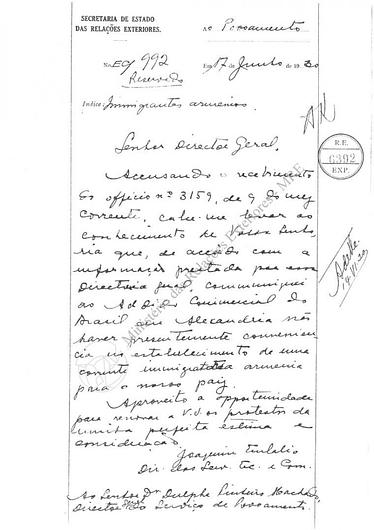 SECRETARIA DE ESTADO
DAS RELAÇÕES EXTERIORES.
Ao Povoamento
No. EC/992
Reservado
Em 17 de Junho de 1930
Indice: Immigrantes armenios.
Senhor Director Geral,
Accusando o recebimento
do officio nº 3159, de 9 do mez
corrente, cabe-me levar ao
conhecimento de Vossa Senho-
ria que, de accordo com a
informação prestada por essa
Directoria Geral, communiquei
ao Addido Commercial do
Brasil em Alexandria não
haver presentemente convenien-
cia no estabelecimento de uma
corrente immigratoria armenia
para o nosso paiz.
Aproveito a opportunidade
para renovar a V.S. os protestos da
minha perfeita estima e
consideração.
Joaquim Eulalio
Dir. dos Serv. Ec. e Com.
Ao Senhor Dr Dulphe Pinheiro Machado,
Director Geral do Serviço de Povoamento.
R.E.
6392
EXP.
Ministério das Relações Exteriores - MRE